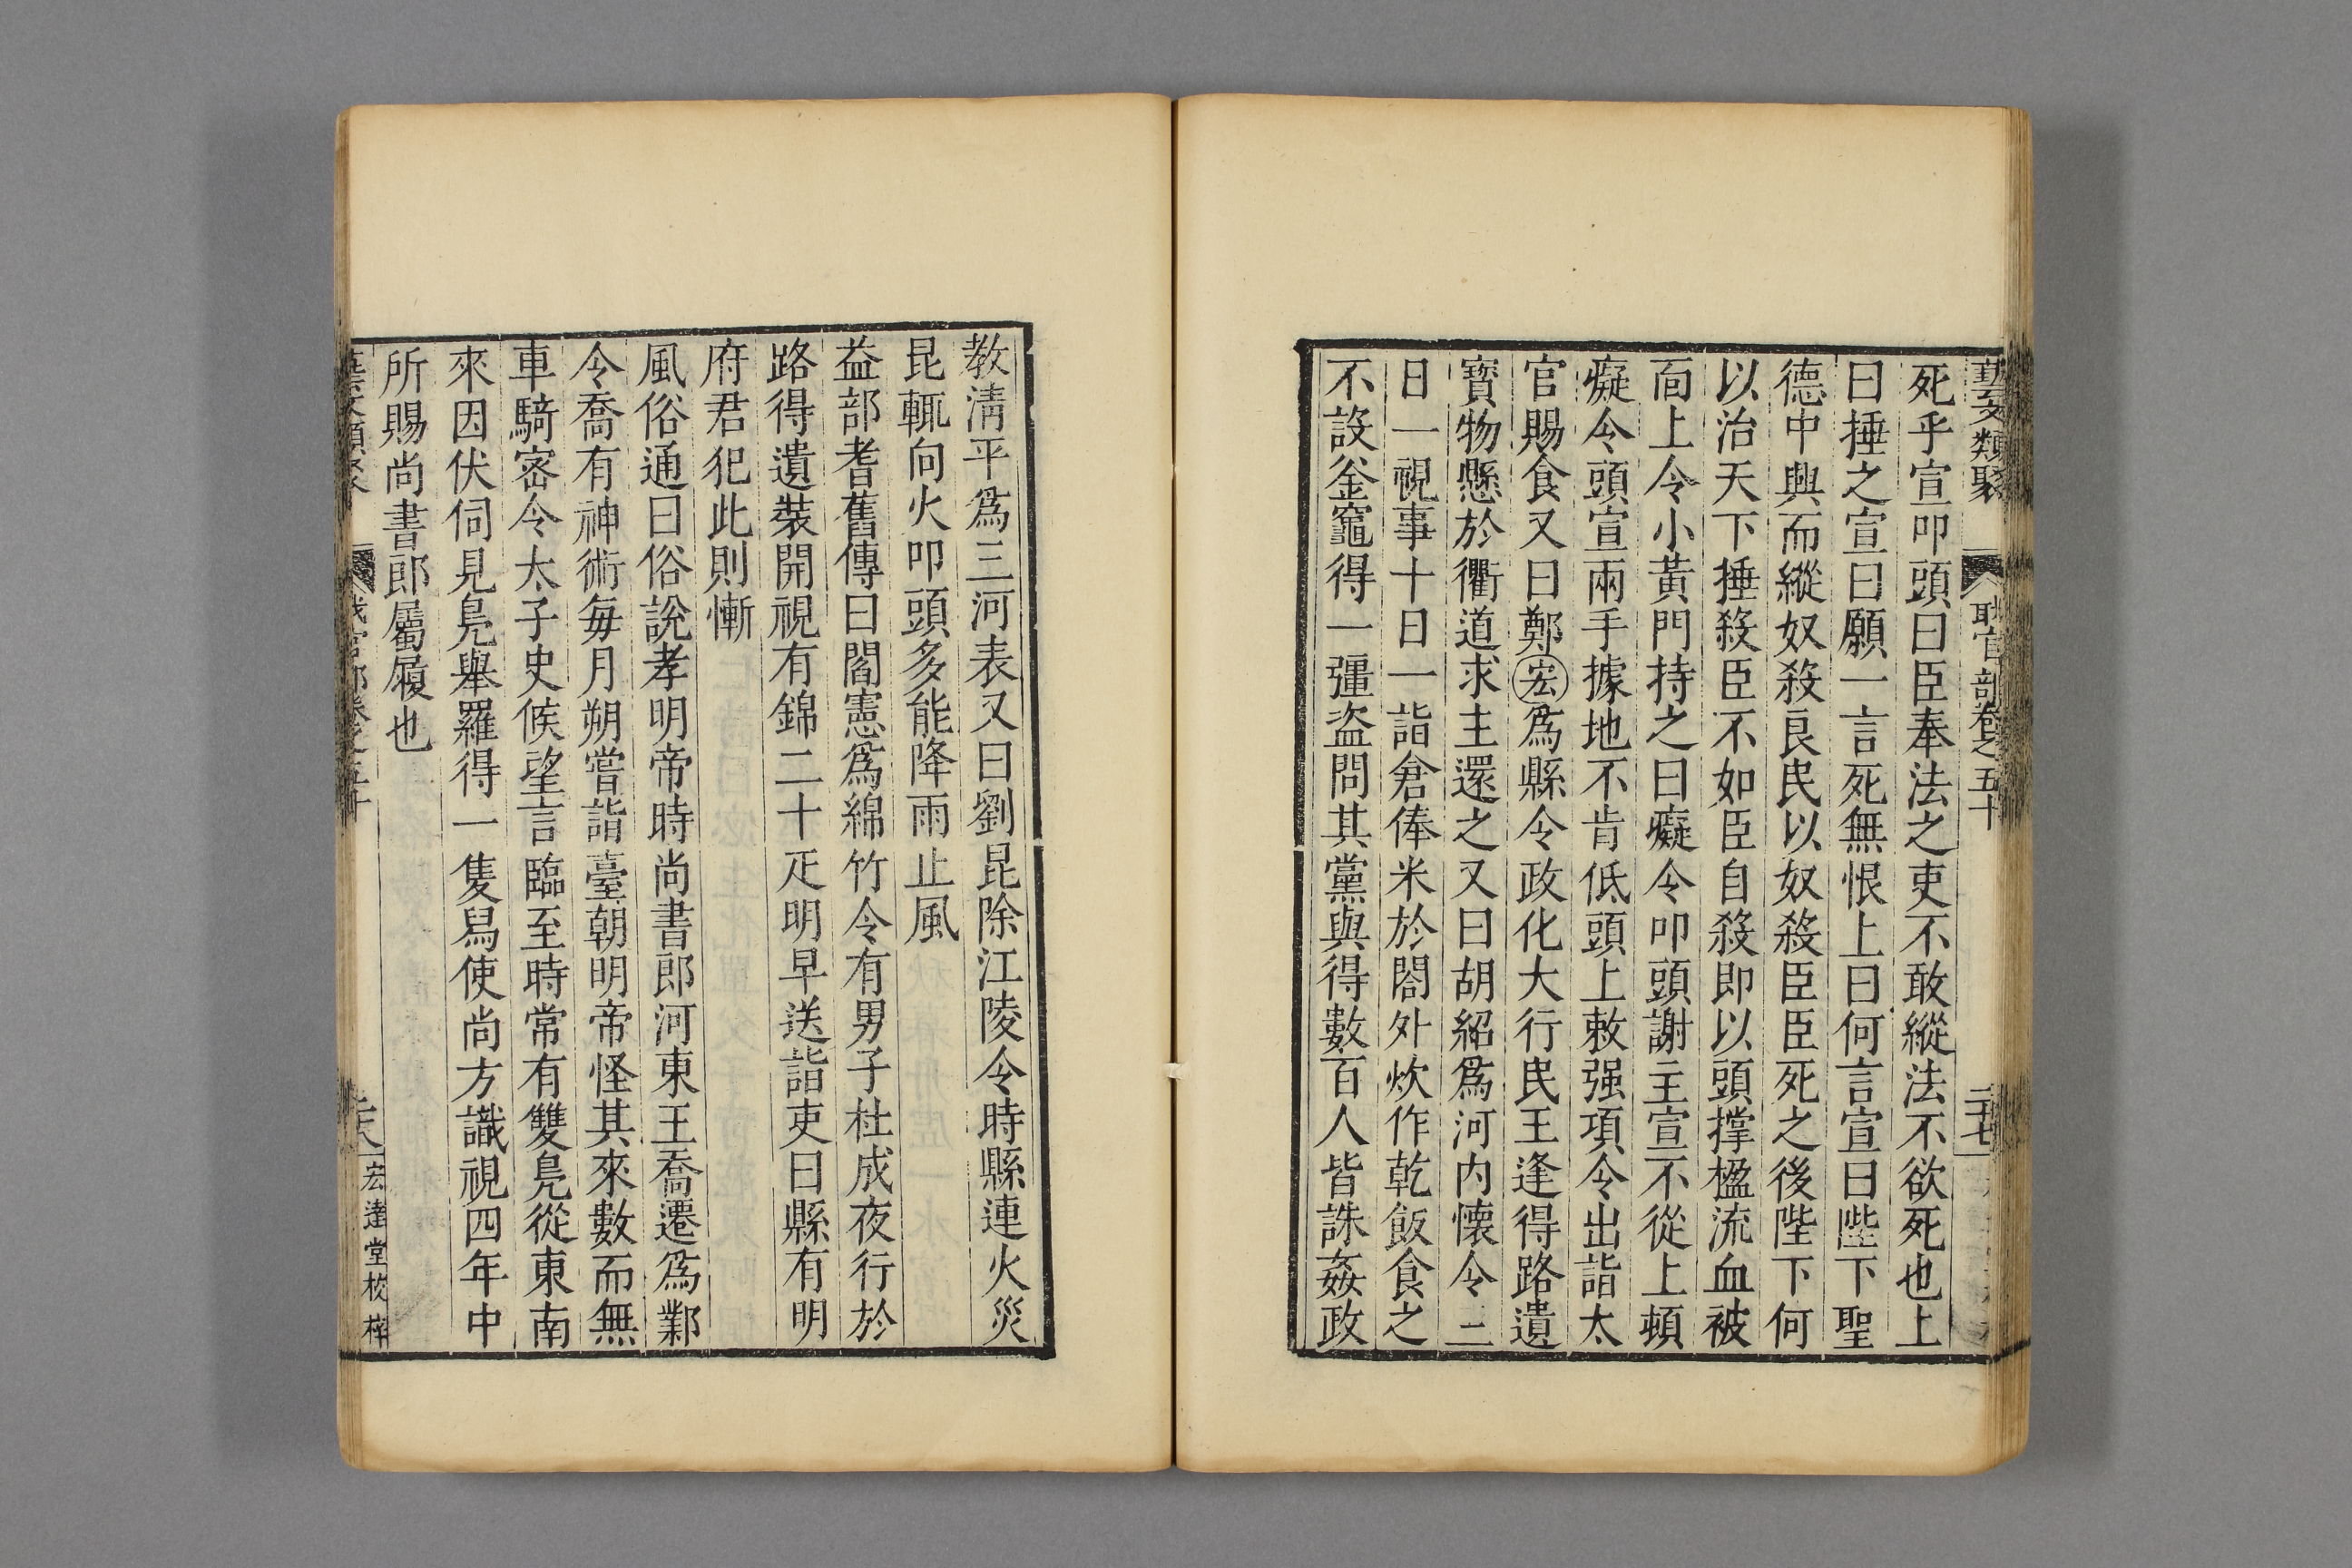 藝文類聚 職官部卷之五十 二十七
死乎宣叩頭曰臣奉法之吏不敢縱法不欲死也上
曰捶之宣曰願一言死無恨上曰何言宣曰陛下聖
德中興而縱奴殺良民以奴殺臣臣死之後陛下何
以治天下捶殺臣不如臣自殺即以頭撑楹流血被
面上令小黃門持之曰癡令叩頭謝主宣不從上頓
癡令頭宣兩手據地不肯低頭上敕强項令出詣太
官賜食又曰鄭宏爲縣令政化大行民王逢得路遺
寳物懸於衢道求主還之又曰胡紹爲河内懷令三
日一視事十日一詣倉俸米於閤外炊作乾飯食之
不設釡竈得一彊盗問其黨與得數百人皆誅姦政
教淸平爲三河表又曰劉昆除江陵令時縣連火災
昆輒向火叩頭多能降雨止風
益部耆舊傳曰閻憲爲綿竹令有男子杜成夜行於
路得遺裝開視有錦二十疋明早送詣吏曰縣有明
府君犯此則慚
風俗通曰俗說孝明帝時尚書郎河東王喬遷爲鄴
令喬有神術每月朔嘗詣臺朝明帝怪其來數而無
車騎密令太子史候望言臨至時常有雙鳧從東南
來因伏伺見鳧舉羅得一隻舄使尚方識視四年中
所賜尚書郎屬履也
藝文類聚 職官部卷之五十 二十八 宏達堂校梓